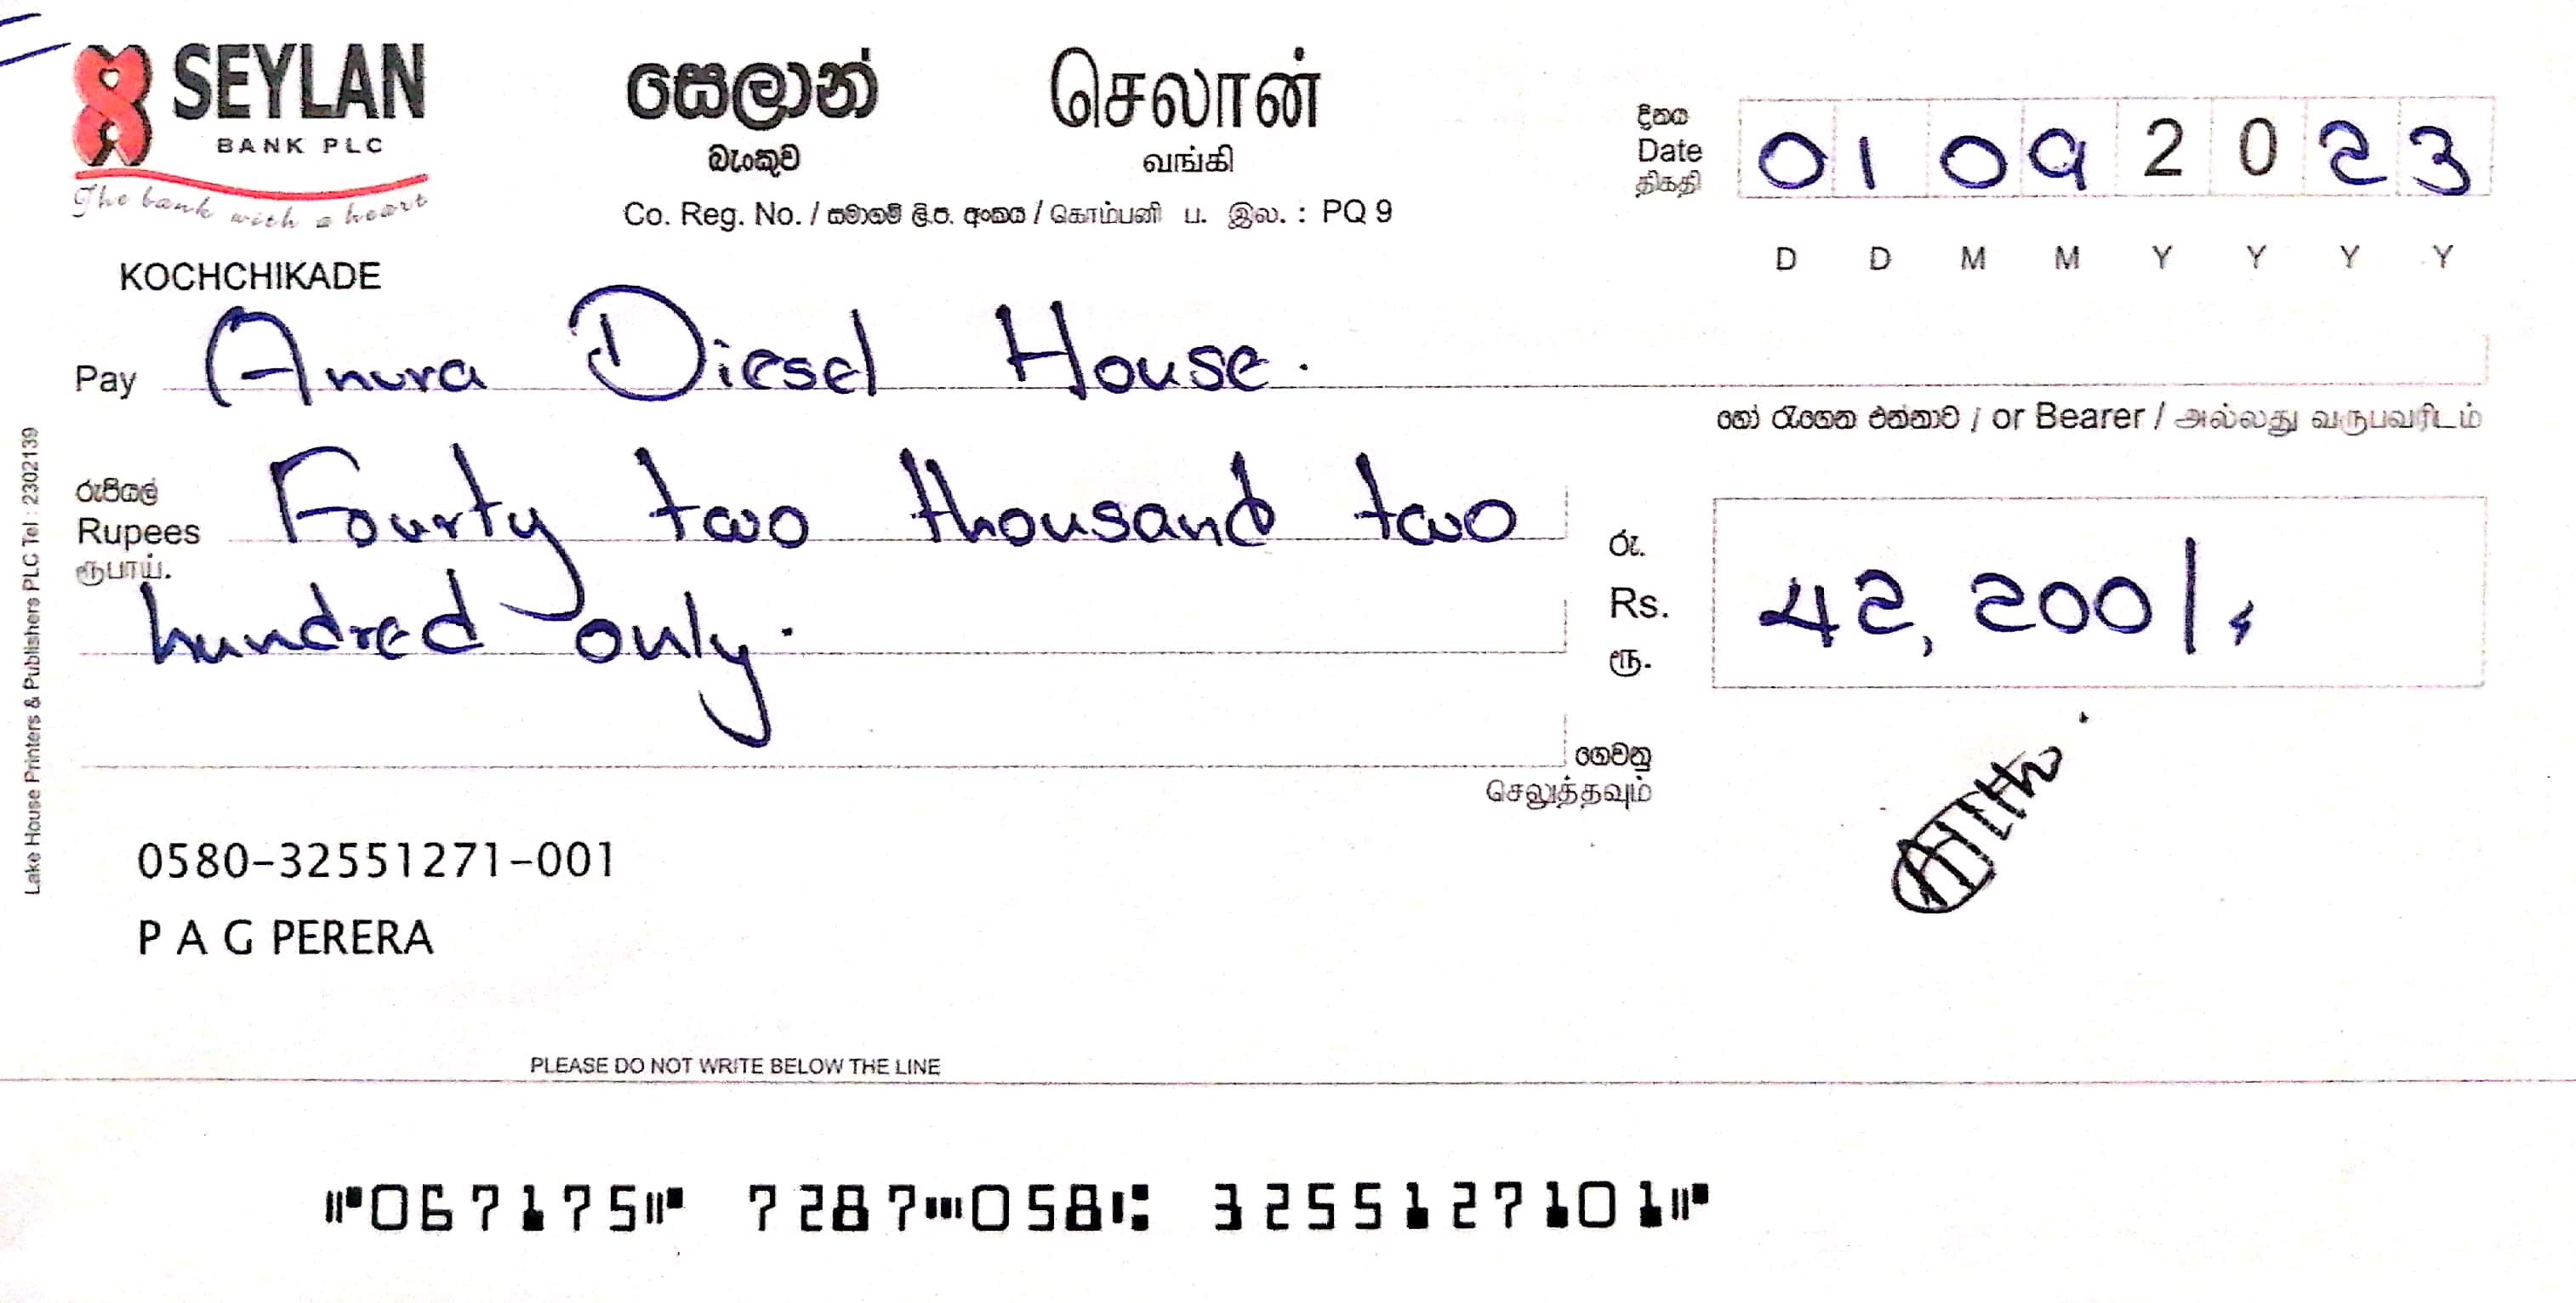 SEYLAN
BANK PLC
The bank with a heart
සෙලාන්
බැංකුව
செலான்
வங்கி
Co. Reg. No. / සමාගම් ලි.ප. අංකය / கொம்பனி ப. இல. : PQ 9
දිනය
Date
திகதி
0 1 0 9 2 0 2 3
D D M M Y Y Y Y
KOCHCHIKADE
Pay Anura Diesel House.
හෝ රැගෙන එන්නාට / or Bearer / அல்லது வருபவரிடம்
රුපියල්
Rupees
ரூபாய்.
Fourty two thousand two
hundred only.
රු.
Rs.
ரூ.
42,200/-
ගෙවනු
செலுத்தவும்
0580-32551271-001
P A G PERERA
Lake House Printers & Publishers PLC Tel : 2302139
PLEASE DO NOT WRITE BELOW THE LINE
⑈067175⑈ 7287⑉058⑆ 3255127101⑈